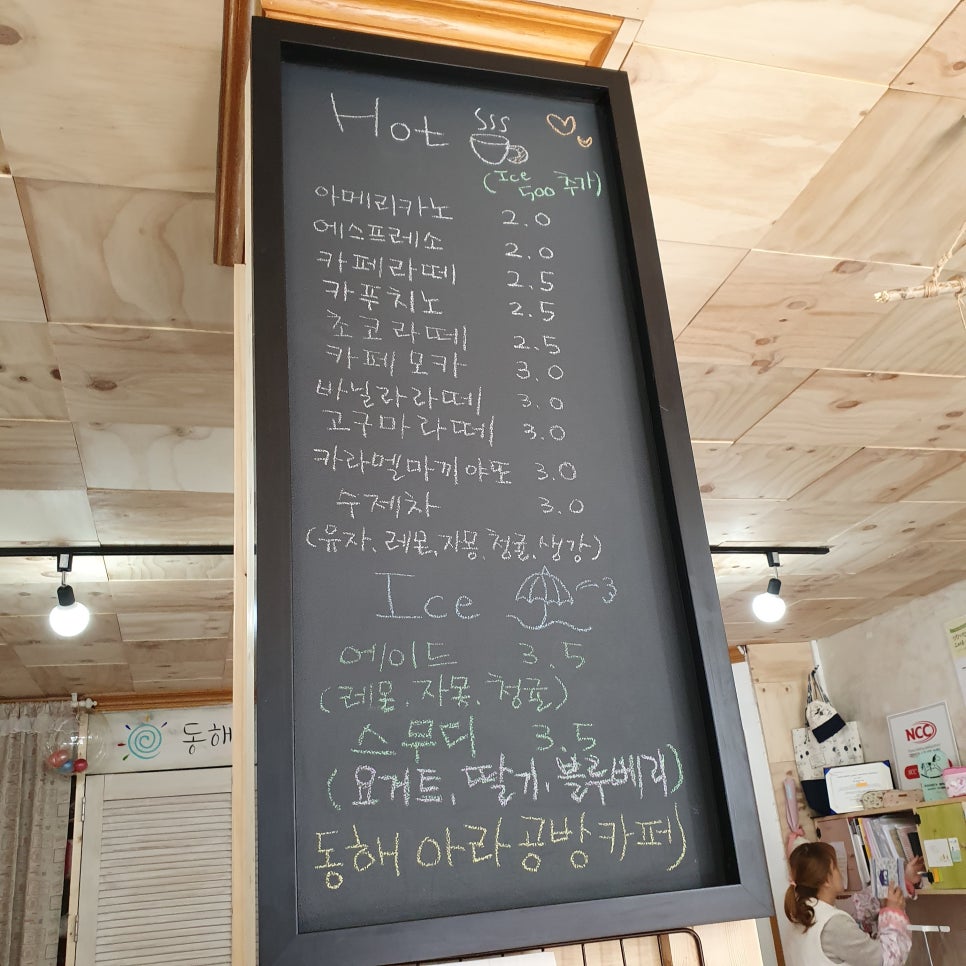 Hot
(Ice 500 추가)
아메리카노 2.0
에스프레소 2.0
카페라떼 2.5
카푸치노 2.5
초코라떼 2.5
카페모카 3.0
바닐라라떼 3.0
고구마라떼 3.0
카라멜마끼야또 3.0
수제차 3.0
(유자. 레몬. 자몽. 청귤. 생강)
Ice
에이드 3.5
(레몬. 자몽. 청귤)
스무디 3.5
(요거트. 딸기. 블루베리)
동해 아라 공방 카페)
동해
NCC